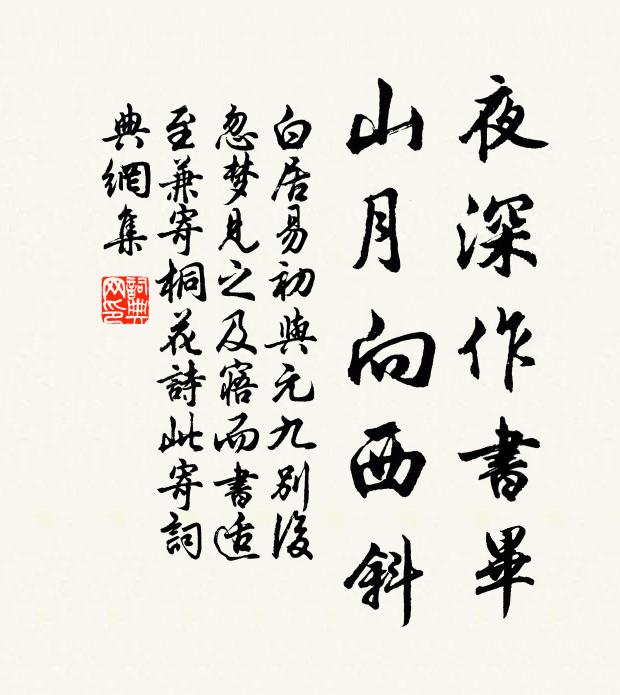 夜深作書畢
山月向西斜
白居易初與元九別後
忽梦見之及寤而書适
至兼寄桐花詩此寄詞
典網集
詞典網印